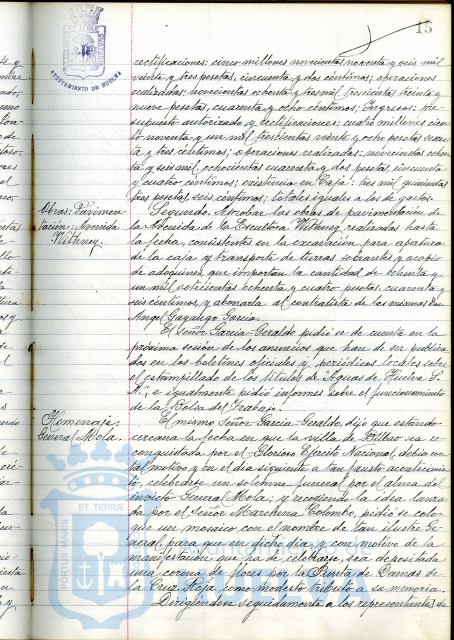 15
AYUNTAMIENTO DE HUELVA
rectificaciones: cinco millones novecientas noventa y seis mil
veinte y tres pesetas, cincuenta y dos céntimos; operaciones
realizadas: novecientas ochenta y tres mil trescientas treinta y
nueve pesetas, cuarenta y ocho céntimos; Ingresos: Pre
supuesto autorizado y rectificaciones; cuatro millones cien
to noventa y un mil trescientas veinte y ocho pesetas
ta y tres céntimos; operaciones realizadas: novecientas ochen
ta y seis mil, ochocientas cuarenta y dos pesetas, cincuenta
y cuatro céntimos; existencia en Caja: tres mil quinientas
tres pesetas seis céntimos; totales iguales a los de gastos.
Obras: Pavimen
tación: Avenida
Withney.
Segundo. Aprobar las obras de pavimentación de
la Avenida de la Escultora Withney, realizadas hasta
la fecha, consistentes en la excavación para apertura
de la caja y transporte de tierras sobrantes y acopio
de adoquines, que importan la cantidad de ochenta y
un mil setecientas ochenta y cuatro pesetas cuarenta y
seis céntimos, y abonarla al contratista de las mismas Don
Angel Gayalego Garcia.
El Señor Garcia Geraldo pidió se de cuenta en la
próxima sesión de los anuncios que han de ser publica
dos en los boletines oficiales y periódicos locales sobre
el estampillado de los títulos de "Aguas de Huelva S.
A", e igualmente pidió informes sobre el funcionamiento
de la Bolsa del Trabajo.
Homenaje:
General Mola.
El mismo Señor Garcia Geraldo, dijo que estando
cercana la fecha en que la villa de Bilbao sea re
conquistada por el Glorioso Ejercito Nacional, debia con
tal motivo y en el día siguiente a tan fausto acontecimien
to, celebrarse un solemne funeral por el alma del
invicto General Mola; y recogiendo la idea lanza
da por el Señor Marchena Colombo, pidió se colo
que un mosaico con el nombre de tan ilustre Ge
neral, para que en dicho día y con motivo de la
manifestación que ha de celebrarse, sea depositada
una corona de flores por la Junta de Damas de
la Cruz Roja, como modesto tributo a su memoria.
Dirigiéndose seguidamente a los representantes de
PORTUS MARIS ET TERRÆ